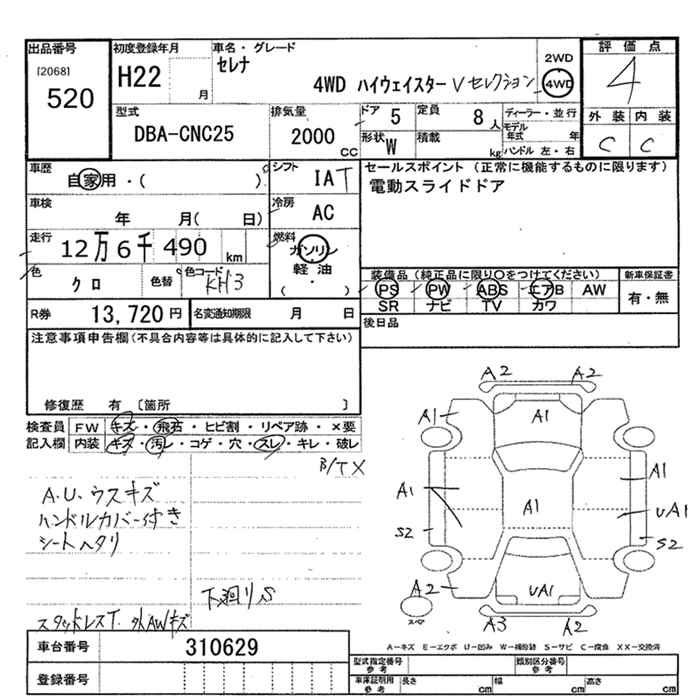 出品番号 初度登録年月 車名・グレード 2WD 評価点
[2068] 520 H22 月 セレナ 4WD ハイウェイスター Vセレクション 4WD 4
型式 排気量 ドア 5 定員 8人 ディーラー・並行 外装 内装
DBA-CNC25 2000 CC 形状 W 積載 kg モデル年式 年 C C
ハンドル 左・右
車歴 自家用・( ) シフト IAT セールスポイント(正常に機能するものに限ります)
車検 年 月( 日) 冷房 AC 電動スライドドア
走行 12万6千490km 燃料 ガソリン
軽油
( ・ )
色 クロ 色替 色コード KH3 装備品(純正品に限り○をつけてください) 新車保証書
PS PW ABS エアB AW 有・無
SR ナビ TV カワ
R券 13,720円 名変通知期限 月 日 後日品
注意事項申告欄(不具合内容等は具体的に記入して下さい)
修復歴 有 〔箇所 〕
検査員 FW キズ・飛石・ヒビ割・リペア跡・×要
記入欄 内装 キズ・汚レ・コゲ・穴・スレ・キレ・破レ
B/TX
A.U.ウスキズ
ハンドルカバー付き
シートヘタリ
下廻りS
スタッドレスT. 外AWキズ
A2 A2
A1 A1
A1
A1 A1 UA1
S2 S2
A2 UA1
スペア A3 A2
A-キズ E-エクボ U-凹み W-補修跡 S-サビ C-腐食 XX-交換済
車台番号 310629
登録番号
型式指定番号 参考 類別区分番号 参考
車庫証明用 参考 長さ cm 幅 cm 高さ cm